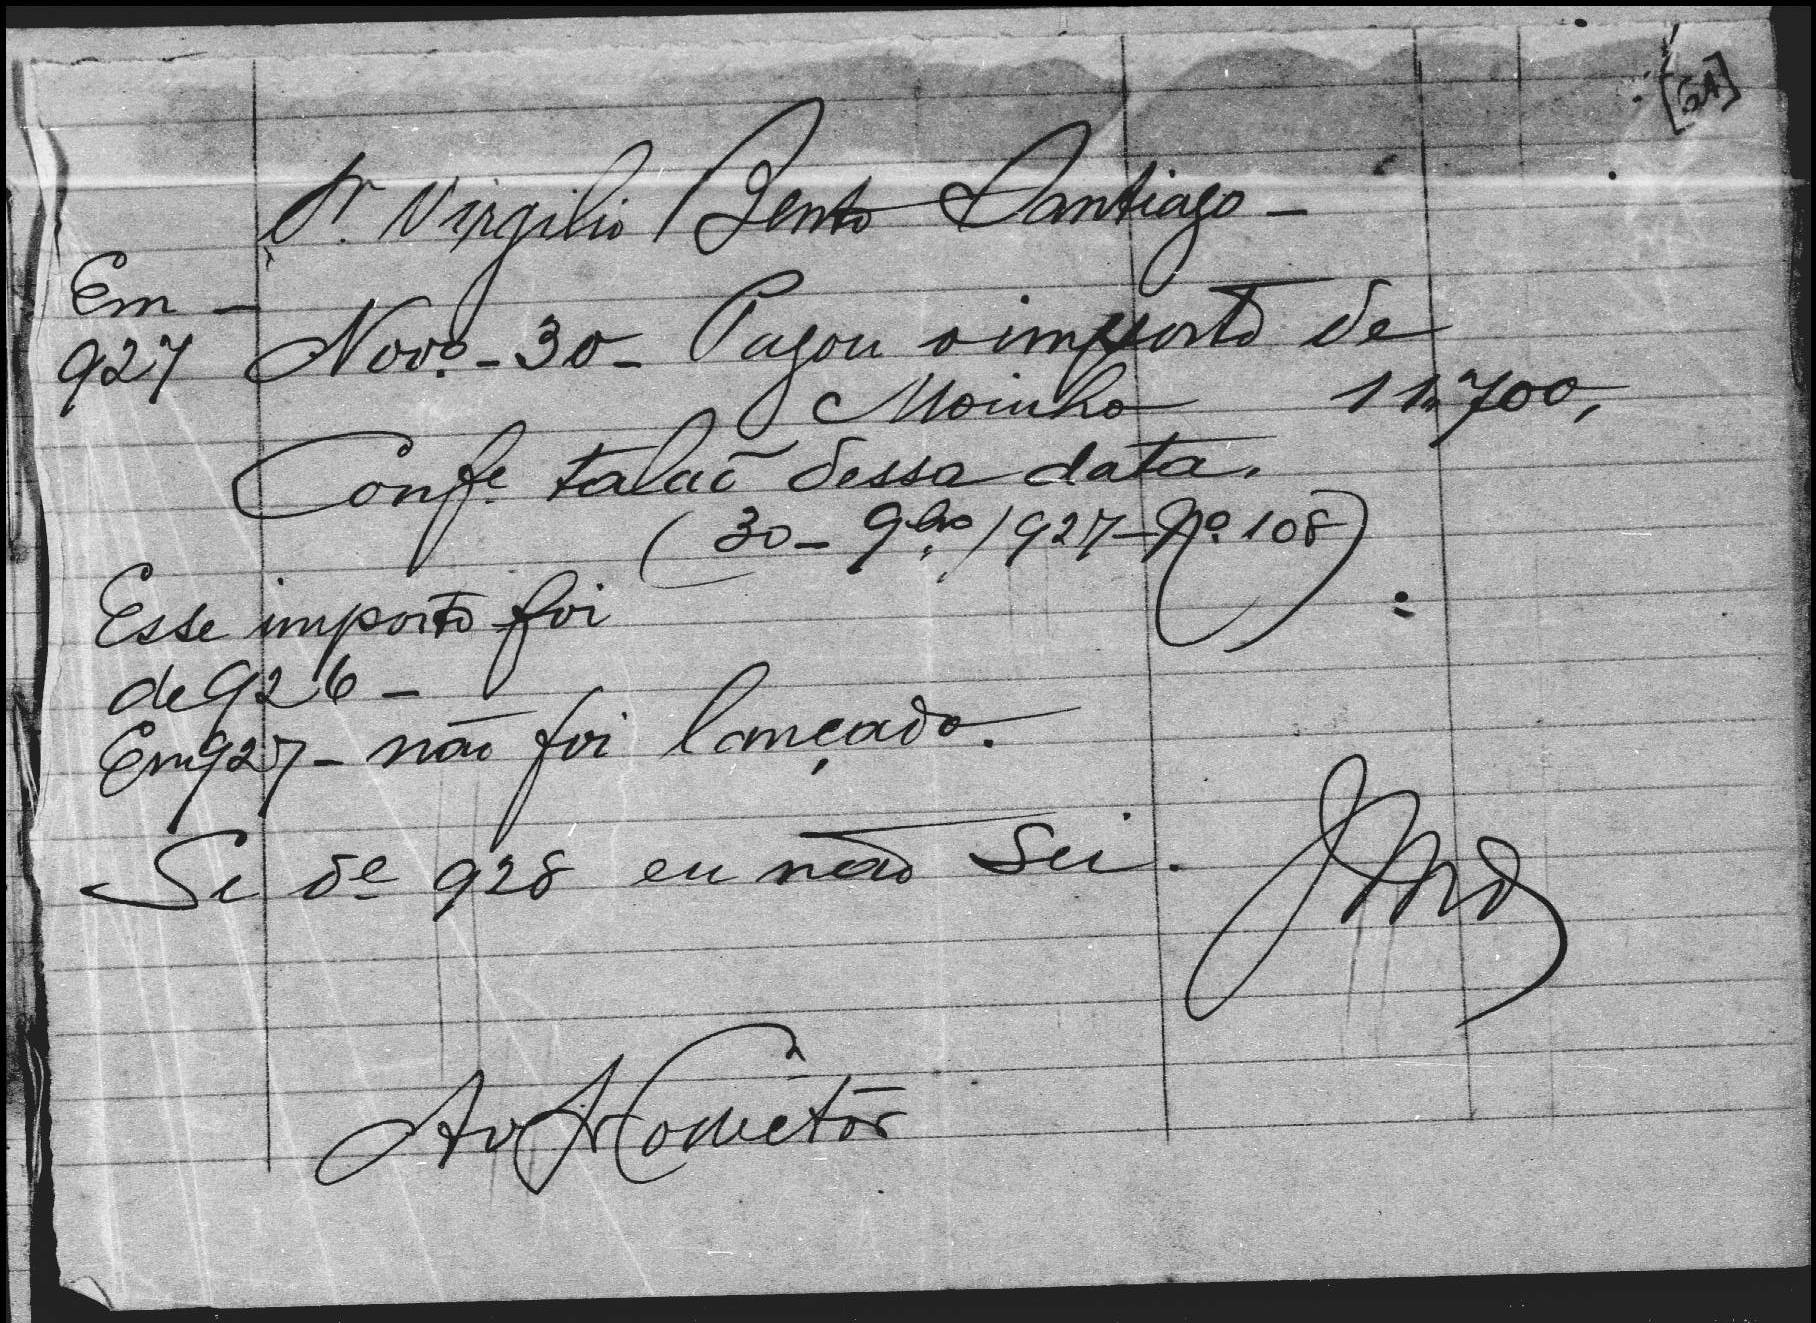 Sr. Virgilio Bento Santiago –
Em –
927 Novº. – 30 – Pagou o imposto de
Moinho 11$700,
Confe. talaõ dessa data.
(30 – 9bro./927 – Nº. 108)
Esse imposto foi
de 926 –
Em 927 – naõ foi lançado.
Si de 928 eu naõ sei.
Ao Sr Colletor